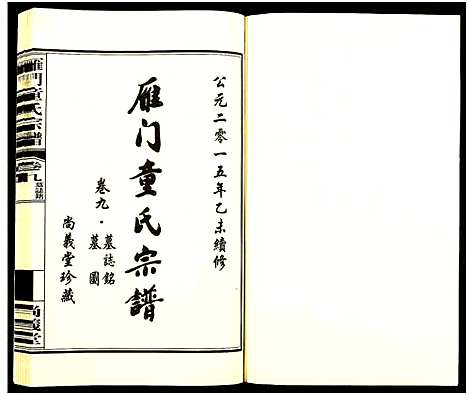 公元二零一五年乙未續修
雁门童氏宗譜
卷九·墓誌銘
墓圖
尚義堂珍藏
雁門童氏宗譜
卷九
墓誌銘
尚義堂